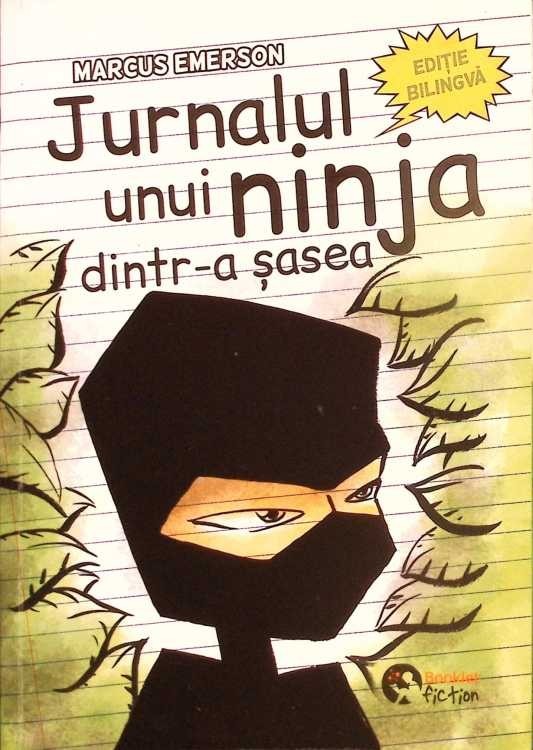 MARCUS EMERSON
EDIȚIE
BILINGVĂ
Jurnalul
unui ninja
dintr-a șasea
Booklet
fiction